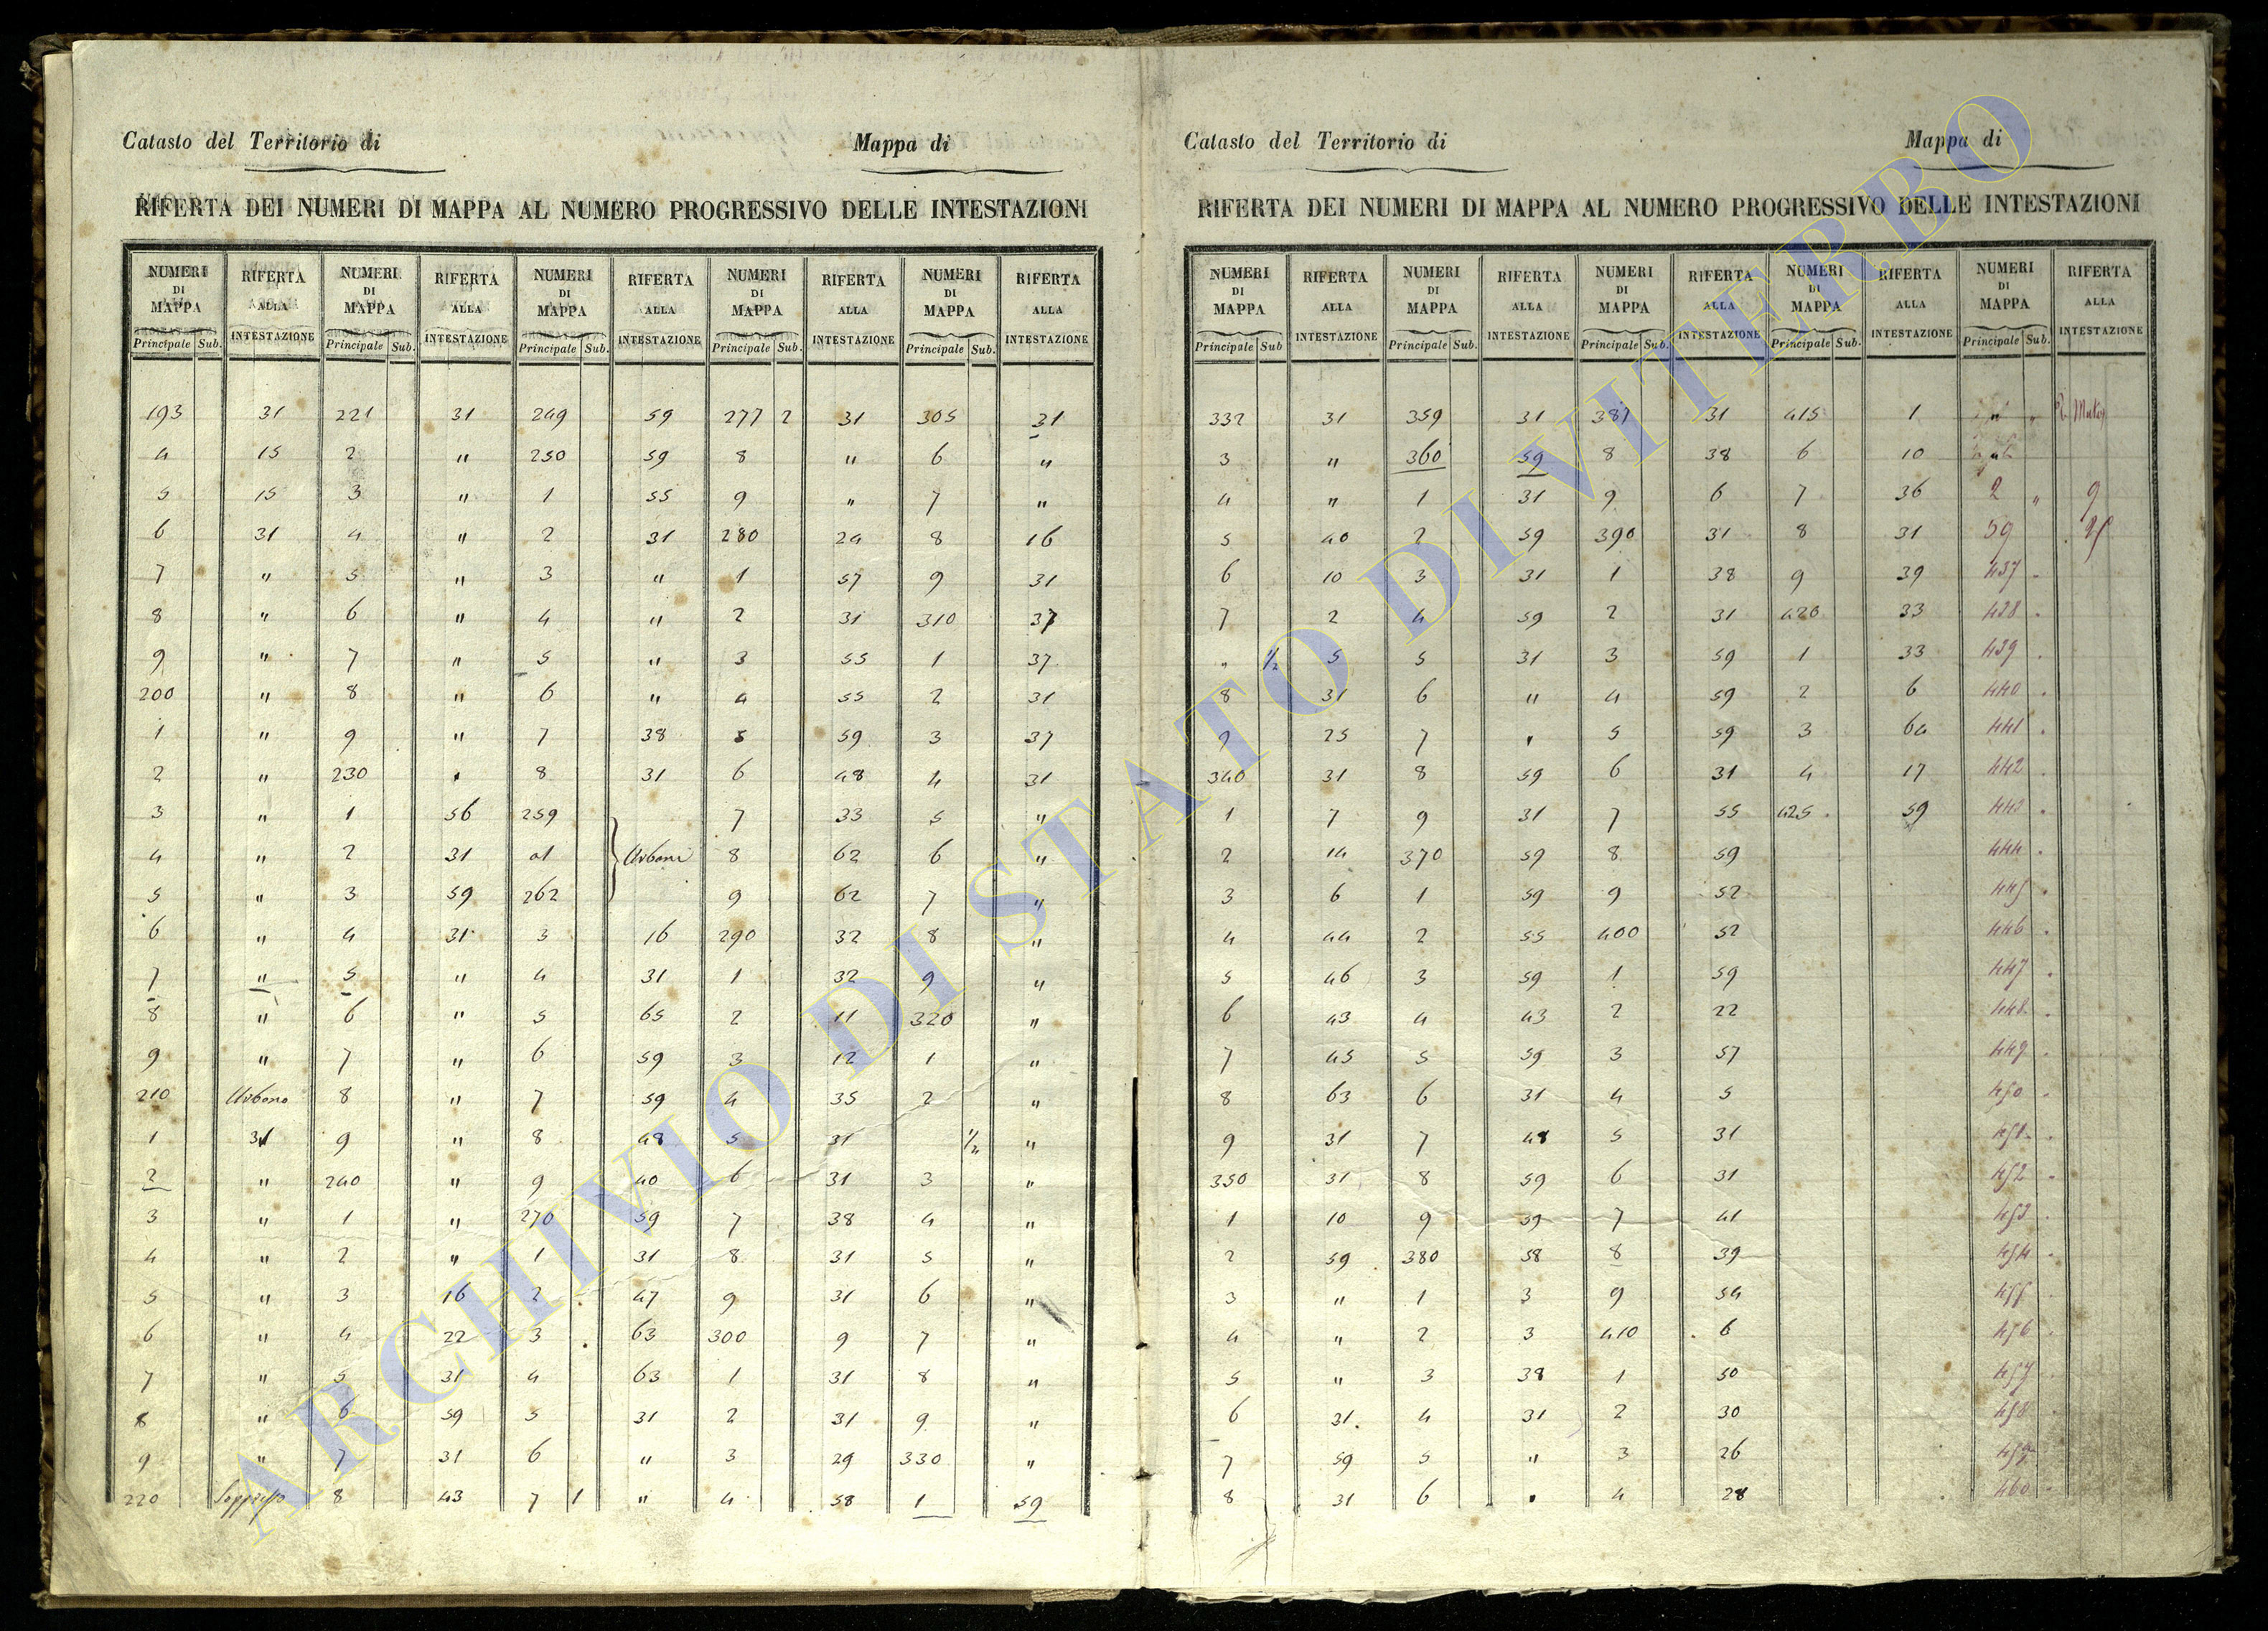 Catasto del Territorio di Mappa di
RIFERTA DEI NUMERI DI MAPPA AL NUMERO PROGRESSIVO DELLE INTESTAZIONI
NUMERI RIFERTA NUMERI RIFERTA NUMERI RIFERTA NUMERI RIFERTA NUMERI RIFERTA
DI DI DI DI DI
MAPPA ALLA MAPPA ALLA MAPPA ALLA MAPPA ALLA MAPPA ALLA
Principale Sub. INTESTAZIONE Principale Sub. INTESTAZIONE Principale Sub. INTESTAZIONE Principale Sub. INTESTAZIONE Principale Sub. INTESTAZIONE
193 31 221 31 249 59 277 2 31 305 31
4 15 2 " 250 59 8 " 6 "
5 15 3 " 1 55 9 " 7 "
6 31 4 " 2 31 280 24 8 16
7 " 5 " 3 " 1 57 9 31
8 " 6 " 4 " 2 31 310 37
9 " 7 " 5 " 3 55 1 37
200 " 8 " 6 " 4 55 2 31
1 " 9 " 7 38 5 59 3 37
2 " 230 " 8 31 6 48 4 31
3 " 1 56 259 7 33 5 "
4 " 2 31 al Urbani 8 62 6 "
5 " 3 59 262 9 62 7 "
6 " 4 31 3 16 290 32 8 "
7 " 5 " 4 31 1 32 9 "
8 " 6 " 5 65 2 11 320 "
9 " 7 " 6 59 3 12 1 "
210 Urbano 8 " 7 59 4 35 2 "
1 31 9 " 8 48 5 31 1/2 "
2 " 240 " 9 40 6 31 3 "
3 " 1 " 270 59 7 38 4 "
4 " 2 " 1 31 8 31 5 "
5 " 3 16 2 47 9 31 6 "
6 " 4 22 3 63 300 9 7 "
7 " 5 31 4 63 1 31 8 "
8 " 6 59 5 31 2 31 9 "
9 " 7 31 6 " 3 29 330 "
220 Soppresso 8 43 7 1 " 4 58 1 59
Catasto del Territorio di Mappa di
RIFERTA DEI NUMERI DI MAPPA AL NUMERO PROGRESSIVO DELLE INTESTAZIONI
NUMERI RIFERTA NUMERI RIFERTA NUMERI RIFERTA NUMERI RIFERTA NUMERI RIFERTA
DI DI DI DI DI
MAPPA ALLA MAPPA ALLA MAPPA ALLA MAPPA ALLA MAPPA ALLA
Principale Sub INTESTAZIONE Principale Sub. INTESTAZIONE Principale Sub. INTESTAZIONE Principale Sub. INTESTAZIONE Principale Sub. INTESTAZIONE
332 31 359 31 387 31 415 1 "
3 " 360 59 8 38 6 10
4 " 1 31 9 6 7 36 2 " 9
5 40 2 59 390 31 8 31 59
6 10 3 31 1 38 9 39 437
7 2 4 59 2 31 420 33 438
" 1/2 5 5 31 3 59 1 33 439
8 31 6 " 4 59 2 6 440
9 25 7 " 5 59 3 64 441
340 31 8 59 6 31 4 17 442
1 7 9 31 7 55 425 59 443
2 14 370 59 8 59 444
3 6 1 59 9 52 445
4 44 2 55 400 52 446
5 46 3 59 1 59 447
6 43 4 43 2 22 448
7 45 5 59 3 57 449
8 63 6 31 4 5 450
9 31 7 48 5 31 451
350 31 8 59 6 31 452
1 10 9 59 7 41 453
2 59 380 58 8 39 454
3 " 1 3 9 54 455
4 " 2 3 410 6 456
5 " 3 38 1 50 457
6 31 4 31 2 30 458
7 59 5 " 3 26 459
8 31 6 " 4 28 460
ARCHIVIO DI STATO DI VITERBO